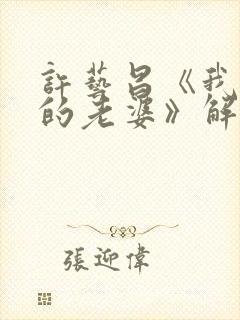 許藝昌《我
的老婆》解
張迎偉